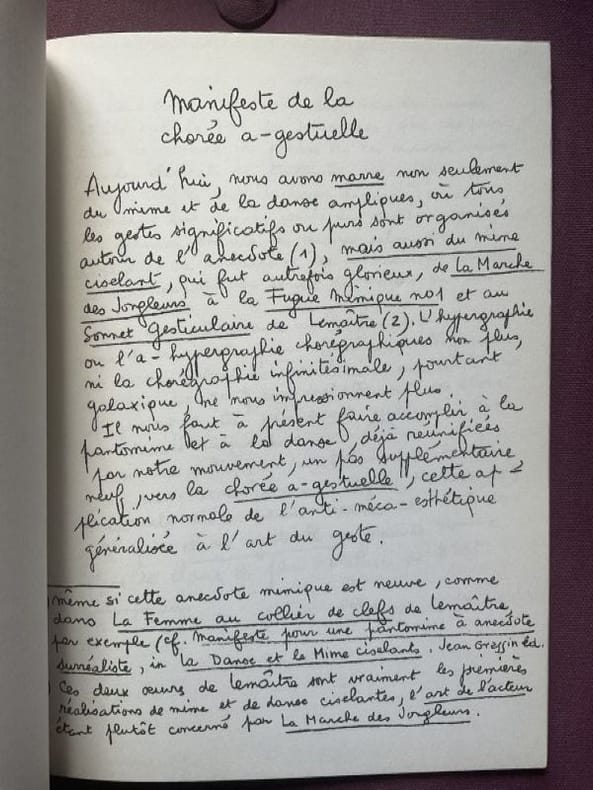 Manifeste de la
chorée a-gestuelle
Aujourd'hui, nous avons marre non seulement
du mime et de la danse ampliques, où tous
les gestes significatifs ou purs sont organisés
autour de l'anecdote (1), mais aussi du mime
ciselant, qui fut autrefois glorieux, de La Marche
des Jongleurs à la Fugue Mimique no1 et au
Sonnet Gesticulaire de Lemaître (2). L'hypergraphie
ou l'a-hypergraphie chorégraphiques non plus,
ni la chorégraphie infinitésimale, pourtant
galaxique, ne nous impressionnent plus.
Il nous faut à présent faire accomplir à la
pantomime et à la danse, déjà réunifiées
par notre mouvement, un pas supplémentaire
neuf, vers la chorée a-gestuelle, cette ap-
plication normale de l'anti-méca-esthétique
généralisée à l'art du geste.
) même si cette anecdote mimique est neuve, comme
dans La Femme au collier de clefs de Lemaître,
par exemple (cf. Manifeste pour une pantomime à anecdote
surréaliste, in La Danse et le Mime ciselants. Jean Grassin éd.
) Ces deux œuvres de Lemaître sont vraiment les premières
réalisations de mime et de danse ciselantes, l'art de l'acteur
étant plutôt concerné par La Marche des Jongleurs.